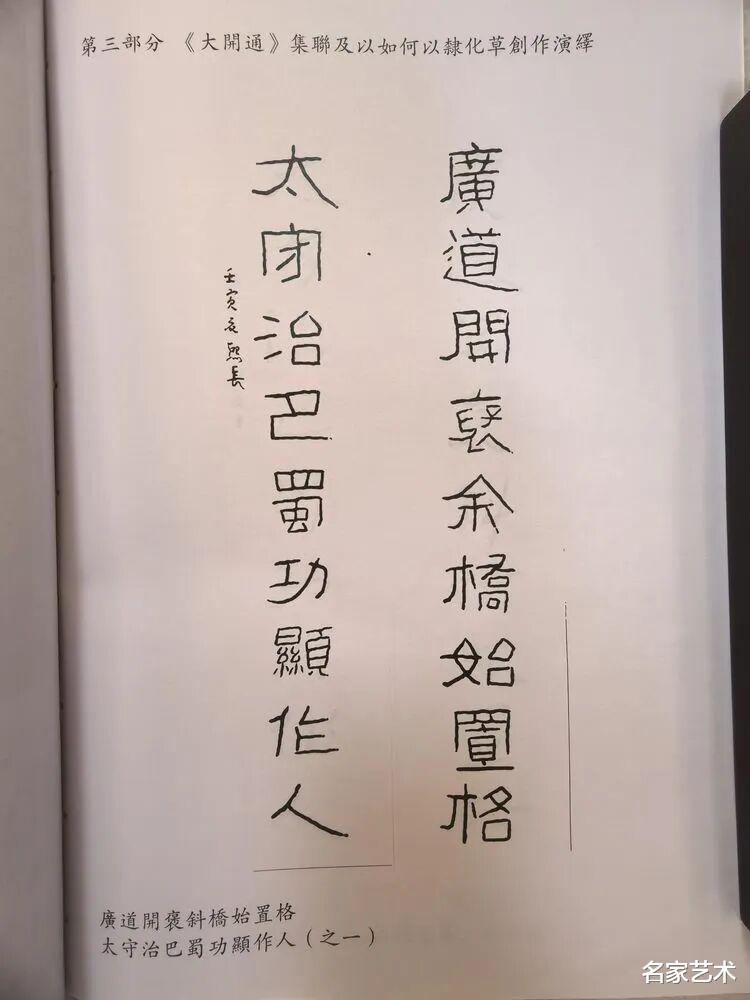 第三部分 《大開通》集聯及以如何以隸化草創作演繹
廣道開褒余橋始置格
太守治巴蜀功顯作人
壬寅熙長
廣道開褒斜橋始置格
太守治巴蜀功顯作人（之一）
名家艺术